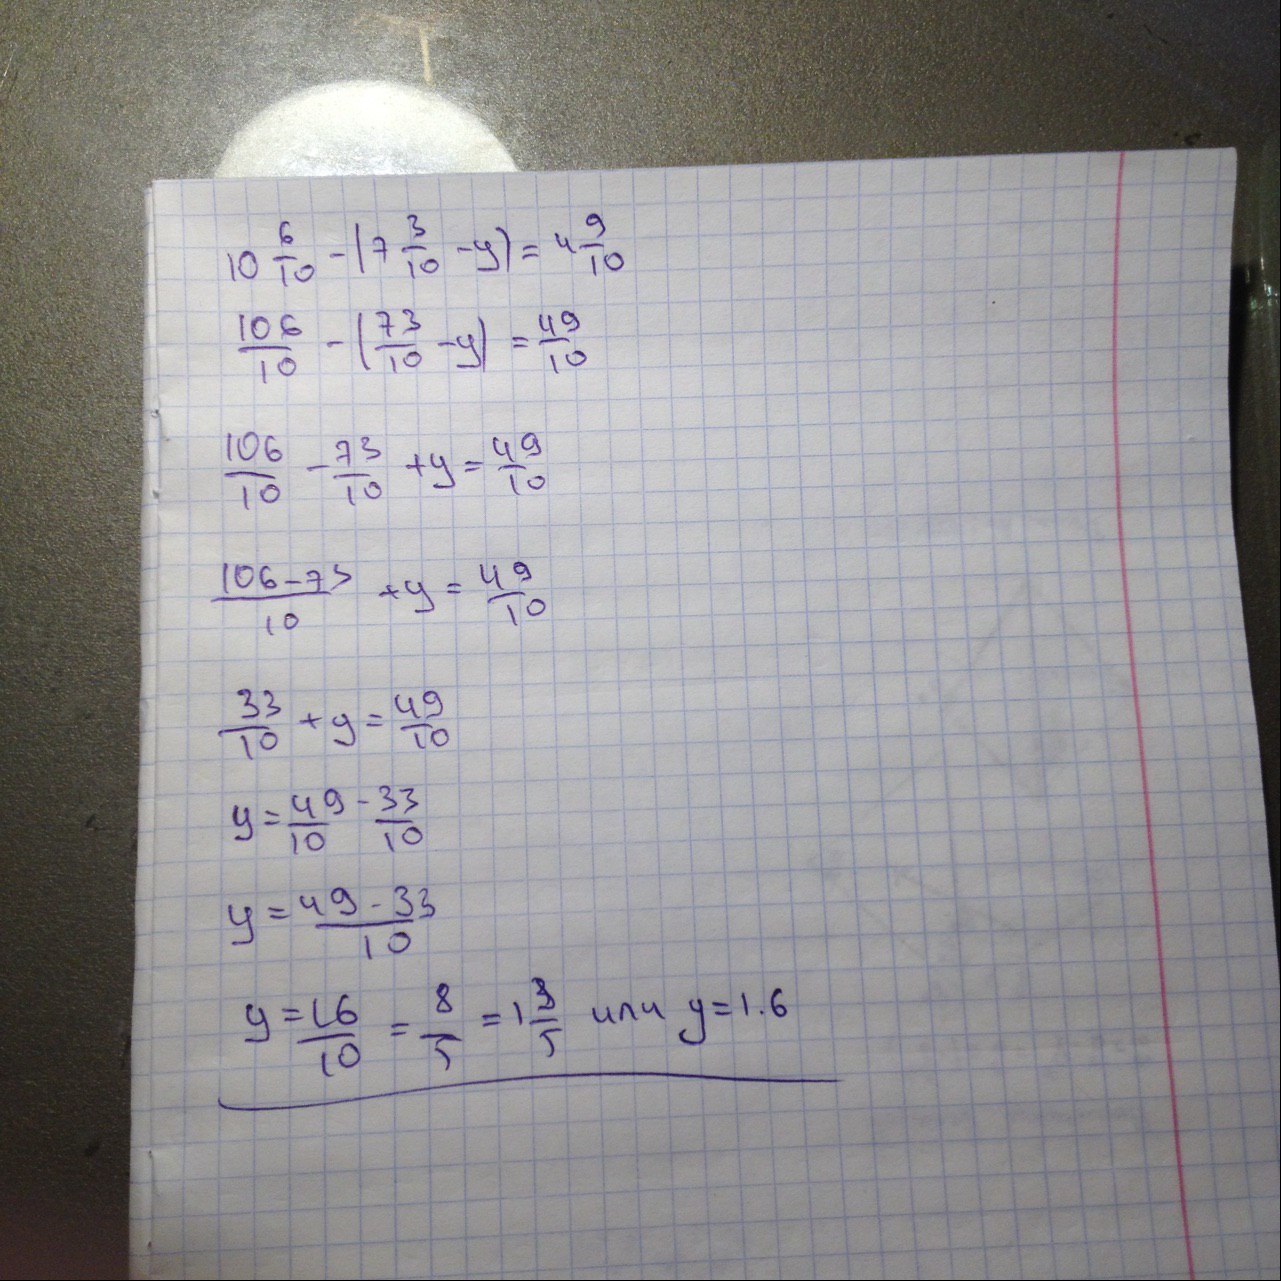 10 6/10 - (7 3/10 - y) = 4 9/10
106/10 - (73/10 - y) = 49/10
106/10 - 73/10 + y = 49/10
106-73/10 + y = 49/10
33/10 + y = 49/10
y = 49/10 - 33/10
y = 49-33/10
y = 16/10 = 8/5 = 1 3/5 или y = 1.6